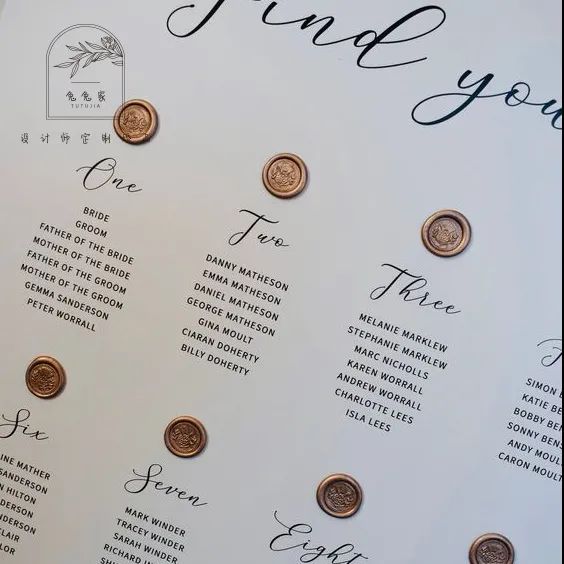 find you
兔兔家
TUTUJIA
设计师定制
One
BRIDE
GROOM
FATHER OF THE BRIDE
MOTHER OF THE BRIDE
FATHER OF THE GROOM
MOTHER OF THE GROOM
GEMMA SANDERSON
PETER WORRALL
Two
DANNY MATHESON
EMMA MATHESON
DANIEL MATHESON
GEORGE MATHESON
GINA MOULT
CIARAN DOHERTY
BILLY DOHERTY
Three
MELANIE MARKLEW
STEPHANIE MARKLEW
MARC NICHOLLS
KAREN WORRALL
ANDREW WORRALL
CHARLOTTE LEES
ISLA LEES
SIMON
KATIE
BOBBY
SONNY
ANDY
CARON
Six
MATHER
SANDERSON
HILTON
Seven
MARK WINDER
TRACEY WINDER
SARAH WINDER
Eight